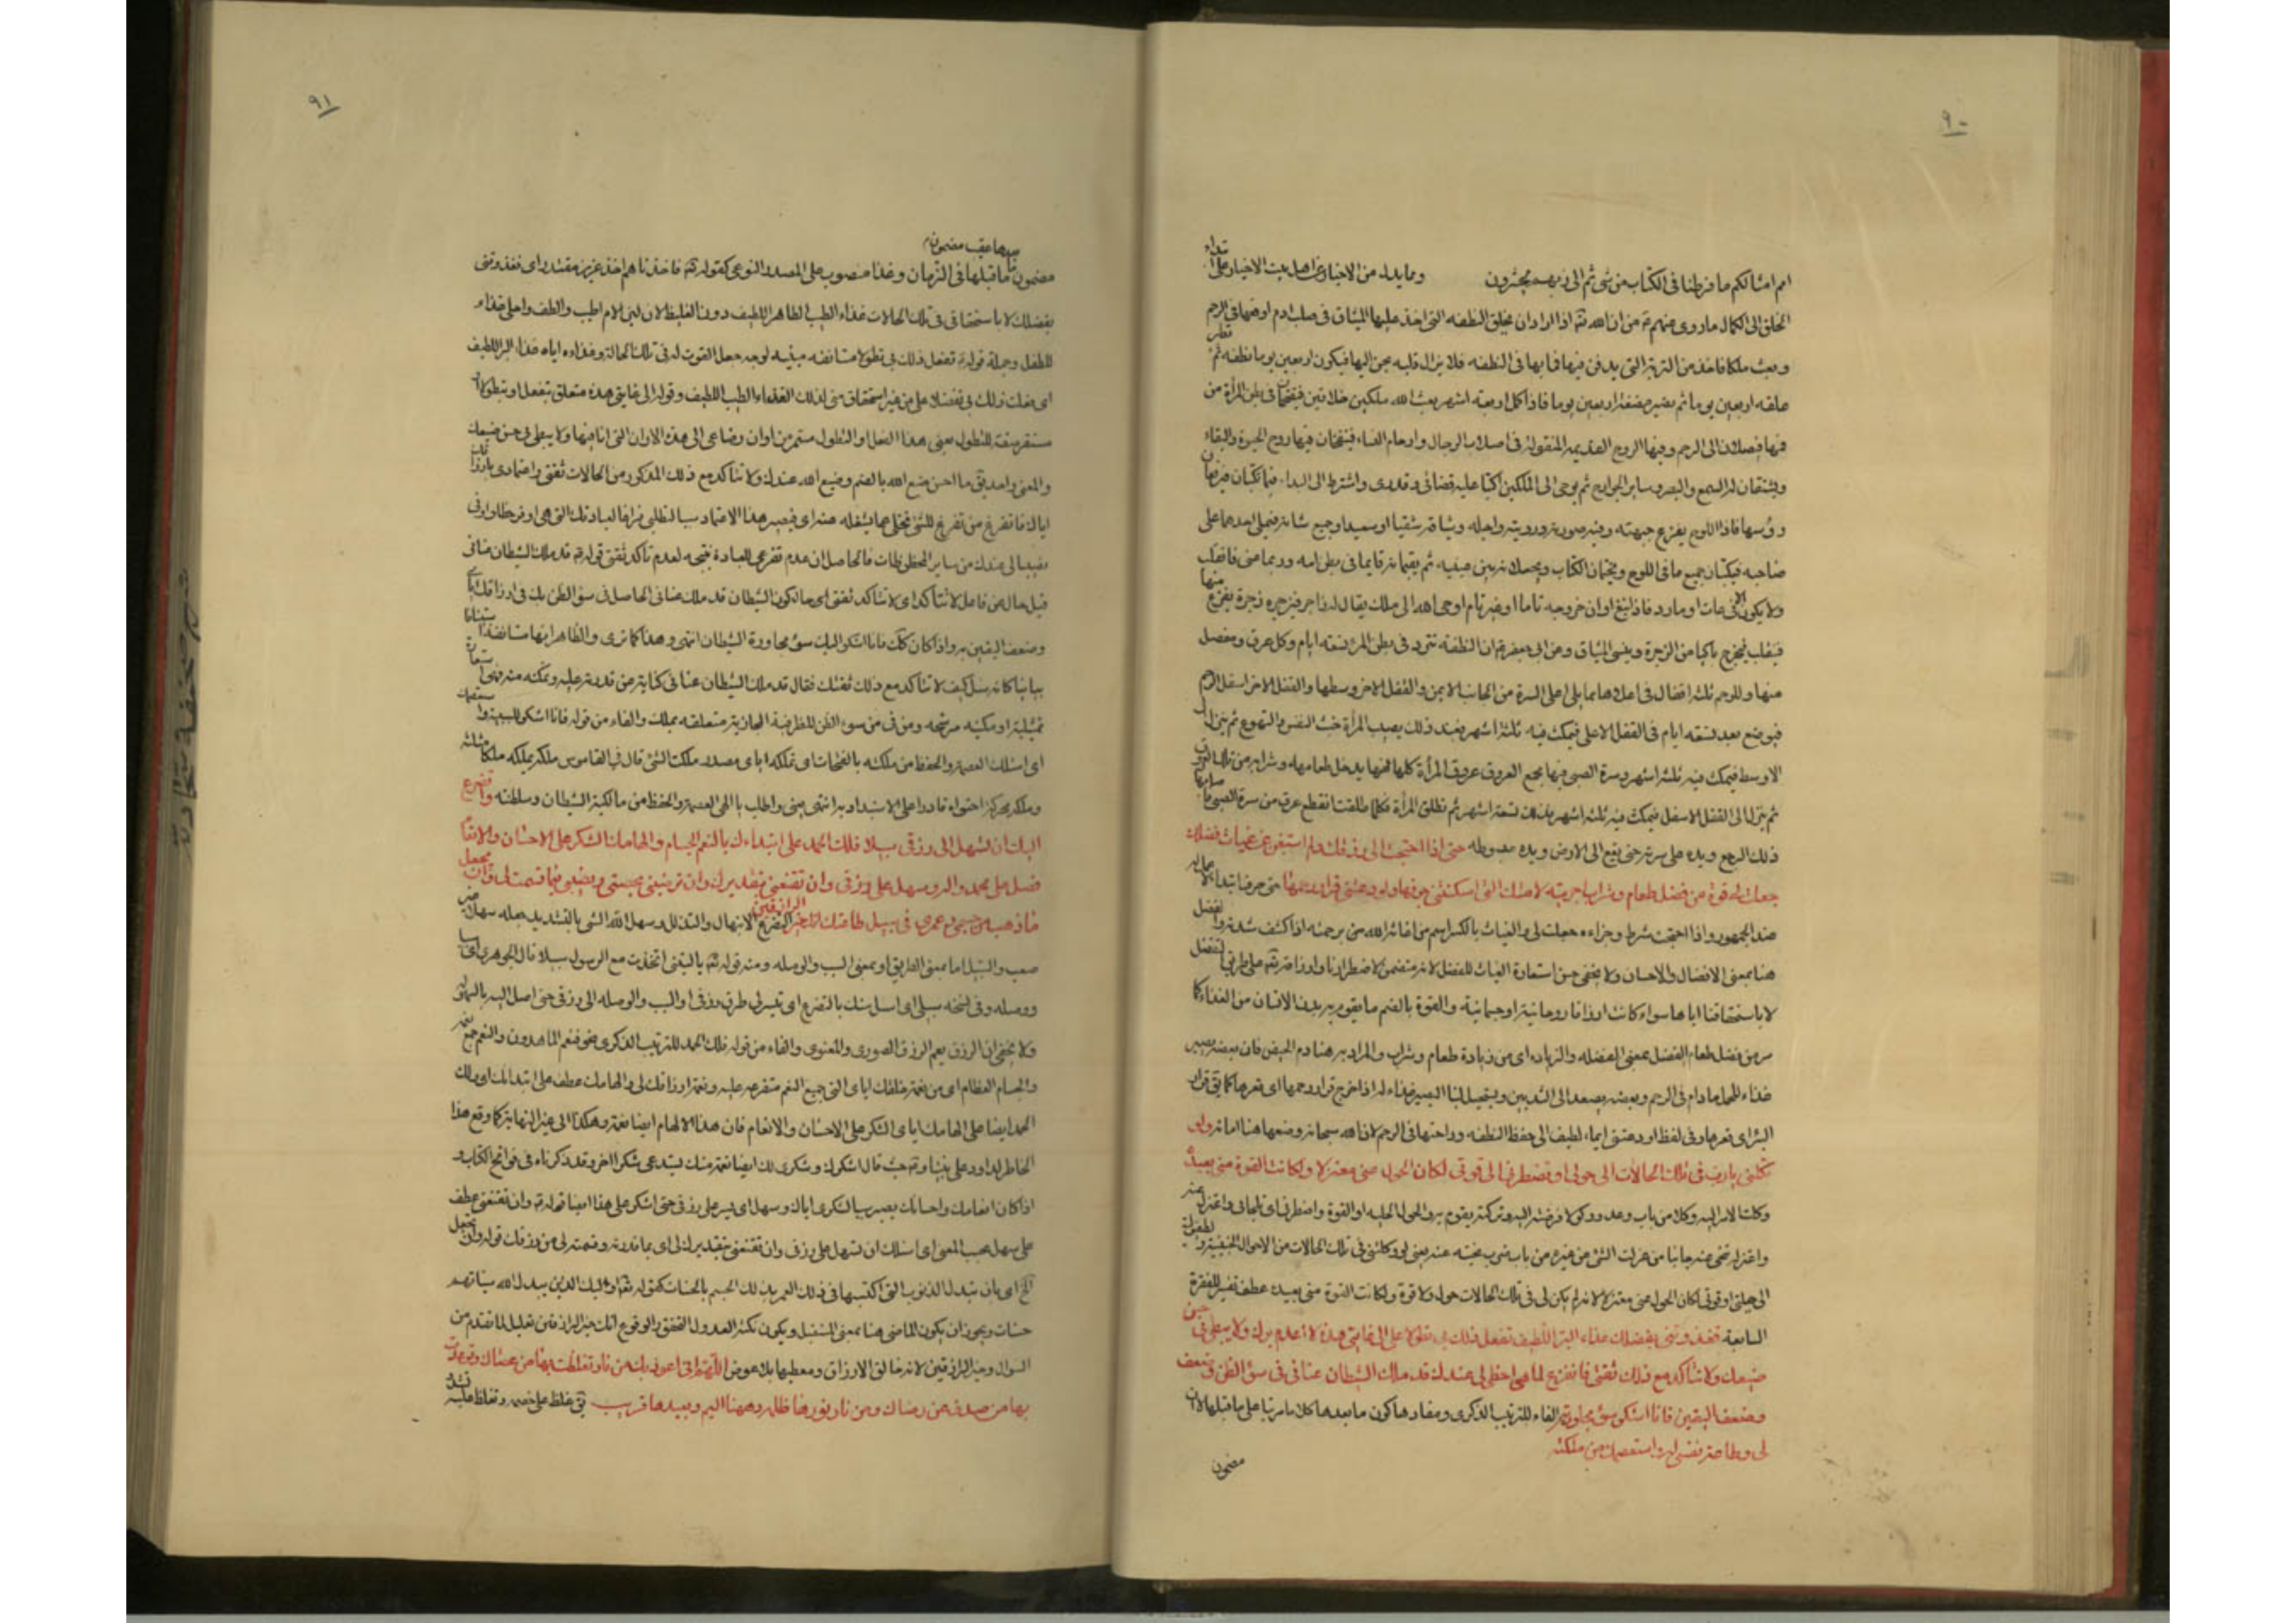 ٩٠
امم امثالكم ما فرطنا فى الكتاب من شئ ثم الى ربهم يحشرون وما يدل من الاخبار عن اهل بيت الاخيار على
الخلق الى الكمال ما روى عنهم من ان الله اذا اراد ان يخلق النطفه التى اخذ عليها الميثاق فى صلب ادم او فيها فى الرحم
وبعث ملكا فاخذ من التربة التى يدفن فيها فما بها فى النطفه فلا يزال قلبه يحن اليها فيكون اربعين يوما نطفه ثم
علقه اربعين يوما ثم يصير مضغة اربعين يوما فاذا كمل اربعة اشهر بعث الله ملكين خلاقين فيقتحمان فى بطن المرأة من
فمها فيصلان الى الرحم وفيها الروح القديمه المنقولة فى اصلاب الرجال وارحام النساء فينفخان فيها روح الحيوة والبقاء
ويشقان له السمع والبصر وساير الجوارح ثم يوحى الى الملكين اكتبا عليه قضائى وقدرى واشترطا لى البدا فيما تكتبان فيرفعان
رؤسهما فاذا اللوح يقرع جبهته وفيه صورته ورويته واجله وميثاقه شقيا او سعيدا وجميع شانه فيملى احدهما على
صاحبه فيكتبان جميع ما فى اللوح ويختمان الكتاب ويجعلانه بين عينيه ثم يقيمانه قايما فى بطن امه وربما عتى فانقلب
ولا يكون الا فى عات او مارد فاذا بلغ اوان خروجه تاما او غير تام اوحى الله الى ملك يقال له زاجر فيزجره زجرة يفزع منها
فينقلب فيخرج باكيا من الزجرة وينسى الميثاق وعن ابى جعفر ان النطفه تتردد فى بطن المرأة تسعه ايام وكل عرق ومفصل
منها وللرحم ثلثه اقفال قفل فى اعلاها مما يلى اعلى السرة من الجانب الايمن والقفل الاخر وسطها والقفل الاخر اسفل الرحم
فيوضع بعد تسعه ايام فى القفل الاعلى فيمكث فيه ثلثة اشهر فعند ذلك يصيب المرأة خبث النفس والتهوع ثم ينزل الى
الاوسط فيمكث فيه ثلثه اشهر وسرة الصبى فيها مجمع العروق عروق المرأة كلها منها يدخل طعامه وشرابه من تلك العروق
ثم ينزل الى القفل الاسفل فيمكث فيه ثلثه اشهر فذلك تسعة اشهر ثم تطلق المرأة فكلما طلقت انقطع عرق من سرة الصبى
ذلك الوجع ويده على سرته حتى يقع الى الارض ويده مبسوطه حتى اذا احتجت الى رزقك ولم استغن عن غياث فضلك
جعلت لى قوة من فضل طعام وشراب اجريته لامتك التى اسكنتنى جوفها واودعتنى قرار رحمها حتى حرف ابتداء
عند الجمهور واذا احتجت شرط وجزاءه جعلت لى والغياث بالكسر اسم من اغاثه الله من برحمته اذا كشف شدته والفضل
هنا بمعنى الافضال والاحسان ولا يخفى حسن استعارة الغياث للفضل لانه متضمن لاضطرارنا وارزاقه على طريق التفضل
لا باستحقاقنا اياها سواء كانت ارزاقا روحانية او جسمانية والقوة بالضم ما يقوم به بدن الانسان من الغذاء كما
مر من فضل طعام الفضل بمعنى الفضله والزياده اى من زيادة طعام وشراب والمراد به هنا دم الحيض فان بعضه يصير
غذاء للحمل ما دام فى الرحم وبعضه يصعد الى الثديين ويستحيل لبنا ليصير غذاء له اذا خرج قرار رحمها اى قعرها كما يق قرار
البئر اى قعرها وفى لفظ اودعتنى ايماء لطيف الى حفظ النطفه وراحتها فى الرحم لان الله سبحانه وضعها هنا امانة ولو
تكلنى يا رب فى تلك الحالات الى حولى او تضطرنى الى قوتى لكان الحول عنى معتزلا ولكانت القوة منى بعيدة
وكلت الامر اليه وكلا من باب وعد ووكولا فوضته اليه وتركته يقوم به والحول الحيله او القوة واضطرنى اى الجانى واعتزل عنه
واعتزله تنحى عنه جانبا من عزلت الشئ عن غيره من باب ضرب نحيته عنه يعنى لو وكلتنى فى تلك الحالات من الاحوال
الى حيلتى او قوتى لكان الحول عنى معتزلا لانه لم يكن لى فى تلك الحالات حول ولا قوة ولكانت القوة منى بعيدة عطف تفسير للفقرة
السابعة فغذوتنى بفضلك غذاء البر اللطيف تفعل ذلك بى تطولا على الى غايتى هذه لا اعدم برك ولا يبطئ بى حسن
صنيعك ولا تتأكد مع ذلك ثقتى فاتفرغ لما هو احظى لى عندك قد ملك الشيطان عنانى فى سوء الظن وضعف
وضعف اليقين فانا اشكو سوء مجاورته الفاء للترتيب الذكرى ومفادها كون ما بعدها كلاما مرتبا على ما قبلها لان
لى وطاعة نفسى له واستعصمك من ملكته
مضمون
٩١
بعدها عقيب مضمون
مضمون ما قبلها فى الزمان وغذاء منصوب على المصدر النوعى كقوله فاخذناهم اخذ عزيز مقتدر اى فغذوتنى
بفضلك لا باستحقاقى فى تلك الحالات غذاء الطيب الطاهر اللطيف دون الغليظ لان لبن الام اطيب والطف واحلى غذاء
للطفل وجملة قوله تفعل ذلك بى تطولا مستانفه مبنيه لوجه جعل القوت له فى تلك الحالة وغذاءه اياه غذاء البر اللطيف
اى فعلت ذلك بى تفضلا على من غير استحقاق منى لذلك الغذاء الطيب اللطيف وقوله الى غايتى هذه متعلق بتفعل او بتطولا
مستقر صفة للتطول يعنى هذا الفعل والتطول مستمر من اوان رضاعى الى هذه الاوان التى انا فيها ولا يبطئ بى حسن صنيعك
والمعنى واحد يق ما احسن صنع الله بالضم وصنيع الله عندك ولا تتأكد مع ذلك المذكور من الحالات ثقتى واعتمادى بارزاقك
اياى فاتفرغ من تفرغ للشئ تخلى عما يشغله عنه اى فيصير هذا الاعتماد سببا لتخلى فراغا لعبادتك التى هى اوفر حظا واوفى
نصيبا لى عندك من ساير الحظوظات فالحاصل ان عدم تفرغى للعبادة نتيجه لعدم تأكد ثقتى قوله قد ملك الشيطان عنانى
قيل حال من فاعل لا تتأكد اى لا تتأكد ثقتى اى حال كون الشيطان قد ملك عنانى الحاصل فى سوء الظن بك فى ارزاقك اياى
وضعف اليقين به واذا كان كك فانا اشكو اليك سوء مجاورة الشيطان انتهى وهذا كما ترى والظاهر انها مستانفة استينافا
بيانيا كانه سئل كيف لا تتأكد مع ذلك ثقتك فقال قد ملك الشيطان عنانى كناية عن قدرته عليه وتمكنه منه فهى استعارة
تمثيلية او مكنيه مرشحه ومن فى من سوء الظن للظرفية المجازية متعلقه بملك والفاء من قوله فانا اشكو للسببية واستعصمك
اى اسئلك العصمة والحفظ من ملكته بالفتحات اى تملكه اياى مصدر ملكت الشئ قال فى القاموس ملكه يملكه ملكا مثلثه
وملكه محركة احتواه قادرا على الاستبداد به انتهى يعنى واطلب يا الهى العصمة والحفظ من مالكية الشيطان وسلطنته واتضرع
اليك ان تسهل الى رزقى سبيلا فلك الحمد على ابتداءك بالنعم الجسام والهامك الشكر على الاحسان والانعام
فصل على محمد واله وسهل على رزقى وان تقنعنى بتقديرك وان ترضينى بحصتى فيما قسمت لى وان تجعل
ما ذهب من جسمى وعمرى فى سبيل طاعتك انك خير الرازقين التضرع الابتهال والتذلل وسهل الله الشئ بالتشديد جعله سهلا غير
صعب والسبيل اما بمعنى الطريق او بمعنى السبب والوصله ومنه قوله يا ليتنى اتخذت مع الرسول سبيلا قال الجوهرى اى سببا
ووصله وفى نسخه سبيلى اى اسئلك بالتضرع اى تيسر لى طرق رزقى او السبب والوصله الى رزقى حتى اصل اليه بالسهولة
ولا يخفى ان الرزق يعم الرزق الصورى والمعنوى والفاء من قوله فلك الحمد للترتيب الذكرى نحو فنعم الماهدون والنعم جمع نعمة
والجسام العظام اى من نعمة خلقك اياى التى جميع النعم متفرعه عليه ونعمة ارزاقك لى والهامك عطف على ابتدائك اى ولك
الحمد ايضا على الهامك اياى الشكر على الاحسان والانعام فان هذا الالهام ايضا نعمة وهكذا الى غير النهاية كما وقع هذا
الخاطر لداود على نبينا وعليه حيث قال اشكرك وشكرى لك ايضا نعمة منك يستدعى شكرا اخر وقد ذكرناه فى فواتح الكتاب و
اذا كان انعامك واحسانك يصير سببا لشكرى اياك وسهل اى يسر على رزقى حتى اشكر على هذا ايضا قوله وان تقنعنى عطف
على سهل بحسب المعنى اى اسئلك ان تسهل على رزقى وان تقنعنى بتقديرك لى اى بما قدرته وقسمته لى من رزقك قوله وان تجعل
الخ اى بان تبدل الذنوب التى اكتسبها فى ذلك العمر بذلك الجسم بالحسنات كقوله اولئك الذين يبدل الله سيئاتهم
حسنات ويجوز ان يكون الماضى هنا بمعنى المستقبل ويكون نكتة العدول التحقق والوقوع انك خير الرازقين تعليل لما تقدم من
السؤال وخير الرازقين لانه خالق الارزاق ومعطيها بلا عوض اللهم انى اعوذ بك من نار تغلظت بها على من عصاك وتوعدت
بها من صدف عن رضاك ومن نار نورها ظلمة وهينها اليم وبعيدها قريب يق غلظ على خصمه وتغلظ عليه تشدد